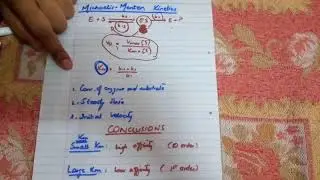 Michaelis-Menten Kinetics
E + S ES E + P
V₀ = Vmax [S] / Km + [S]
Km =
1. Conc. of enzyme and substrate
2. Steady State
3. Initial Velocity
CONCLUSIONS
Km
Small Km: high affinity (0 order)
Large Km: low affinity (1st order)